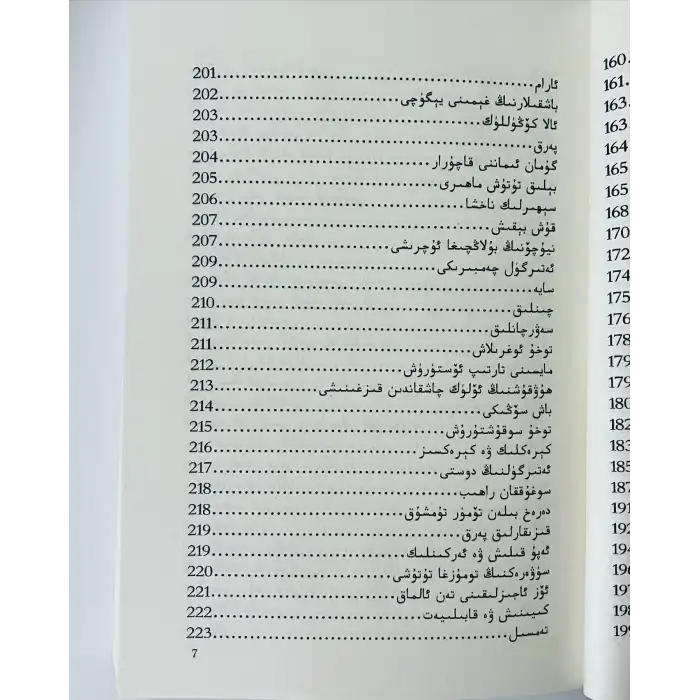 ئارام 201
باشقىلارنىڭ غېمىنى يېگۈچى 202
ئالا كۆڭۈللۈك 203
پەرق 203
گۇمان ئىماننى قاچۇرار 204
بېلىق تۇتۇش ماھىرى 205
سېھىرلىك ناخشا 206
قۇش بېقىش 207
نيۇچۆنىڭ بۇلاڭچىغا ئۇچرىشى 207
ئەتىرگۈل چەمبىرىكى 209
سايە 209
چىنلىق 210
سەۋرچانلىق 211
توخۇ ئوغرىلاش 211
مايسىنى تارتىپ ئۆستۈرۈش 212
ھۇۋقۇشنىڭ ئۆلۈك چاشقاندىن قىزغىنىشى 213
باش سۆڭىكى 214
توخۇ سوقۇشتۇرۇش 215
كېرەكلىك ۋە كېرەكسىز 216
ئەتىرگۈلنىڭ دوستى 217
سوغۇققان راھىب 218
دەرەخ بىلەن تۆمۈر تۇمشۇق 218
قىزىقارلىق پەرق 219
ئەپۇ قىلىش ۋە ئەركىنلىك 219
سۈۋەرەكنىڭ تومۇزغا تۇتۇشى 220
ئۆز ئاجىزلىقىنى تەن ئالماق 221
كىيىنىش ۋە قابىلىيەت 222
تەمسىل 223
7
160
161
163
163
164
165
165
168
170
172
174
175
176
178
179
179
180
182
183
185
187
191
192
194
196
197
198
199